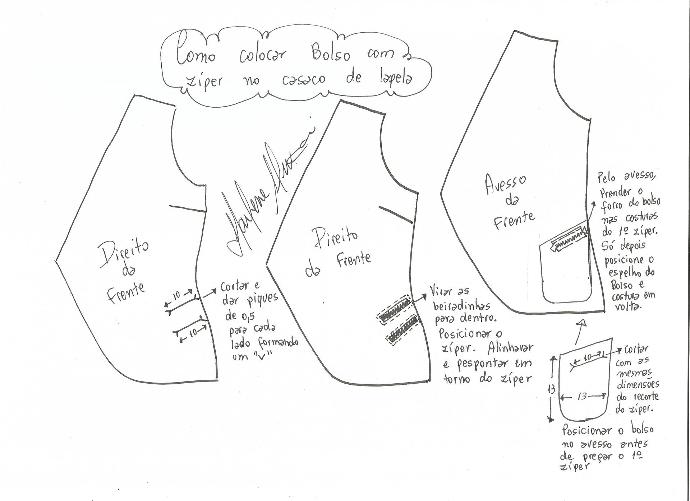 Como colocar Bolso com
zíper no casaco de lapela
Marlene Mukai
Direito
da
Frente
10
10
Cortar e
dar piques
de 0,5
para cada
lado formando
um "V"
Direito
da Frente
Virar as
beiradinhas
para dentro.
Posicionar o
zíper. Alinhavar
e pespontar em
torno do zíper
Avesso
da
Frente
Pelo avesso,
Prender o
forro do bolso
nas costuras
do 1º zíper.
Só depois
posicione o
espelho do
Bolso e
costura em
volta.
10
13
13
Cortar
com as
mesmas
dimensões
do recorte
do zíper.
Posicionar o bolso
no avesso antes
de pregar o 1º
zíper